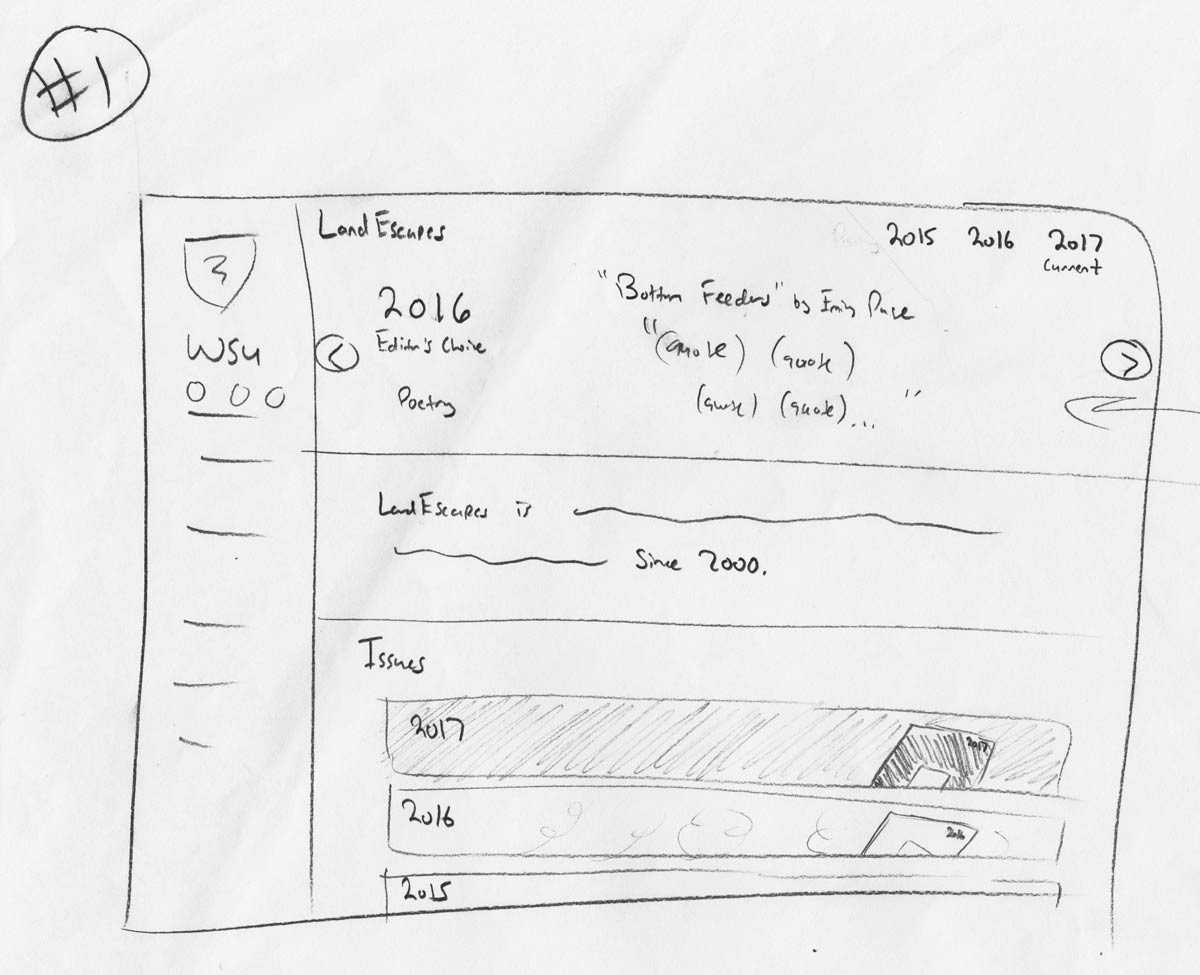 #1
WSU
LandEscapes
2015 2016 2017
Current
2016
Editor's Choice
Poetry
"Bottom Feeders" by
"(quote) (quote)
(quote) (quote)..."
LandEscapes is
Since 2000.
Issues
2017
2017
2016
2016
2015